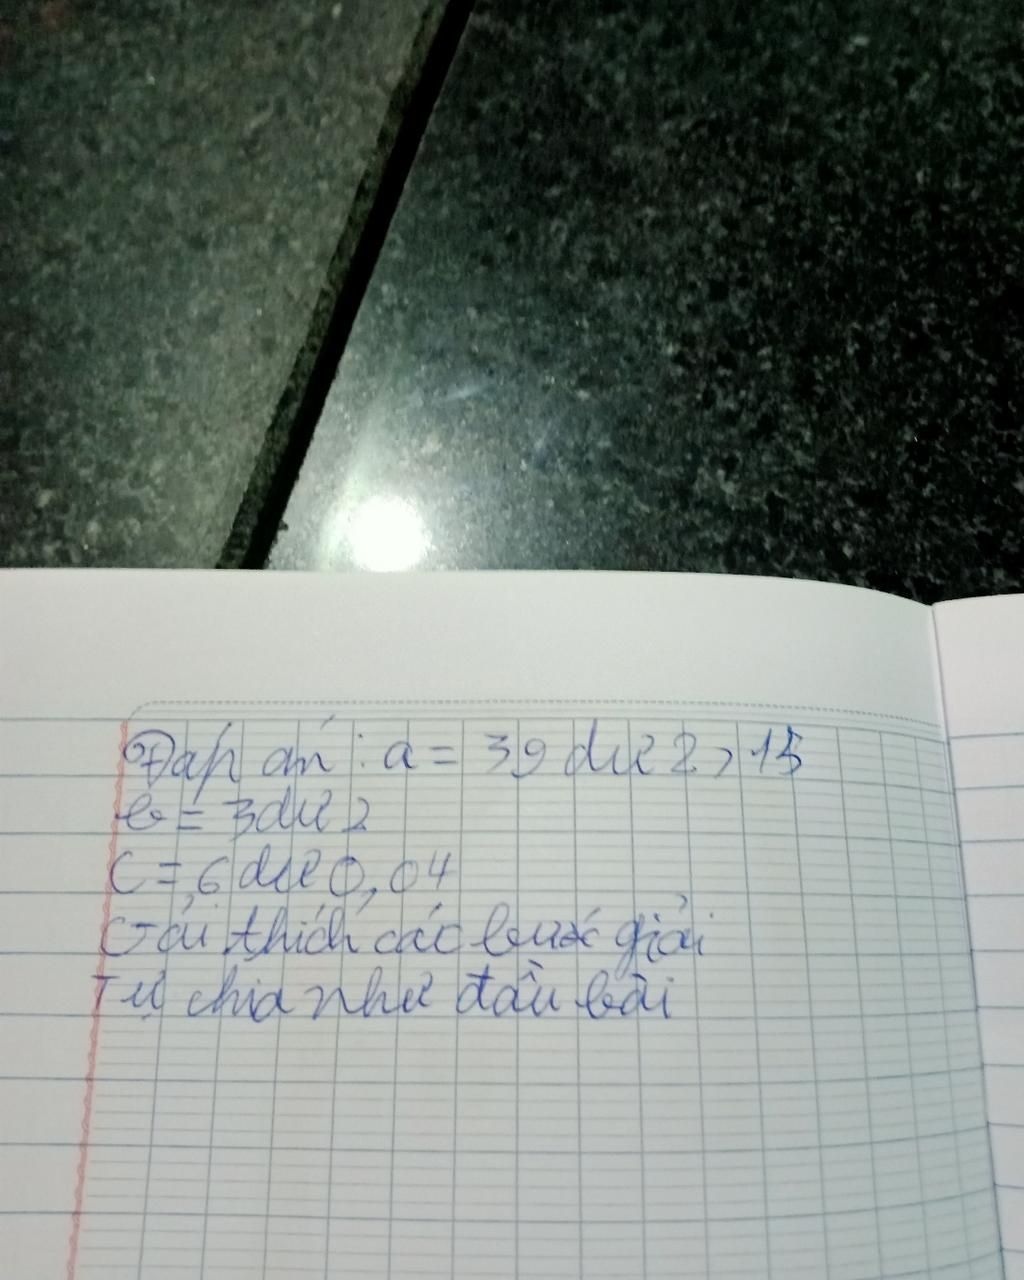 Đáp án : a = 39 dư 2,15
b = 3 dư 2
C = 6 dư 0,04
Giải thích các bước giải
Tự chia như đầu bài